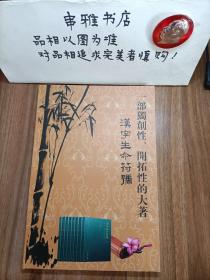 串雅书店
品相以图为准
对品相追求完美者慎购！
一部獨創性、開拓性的大著
漢字生命符號